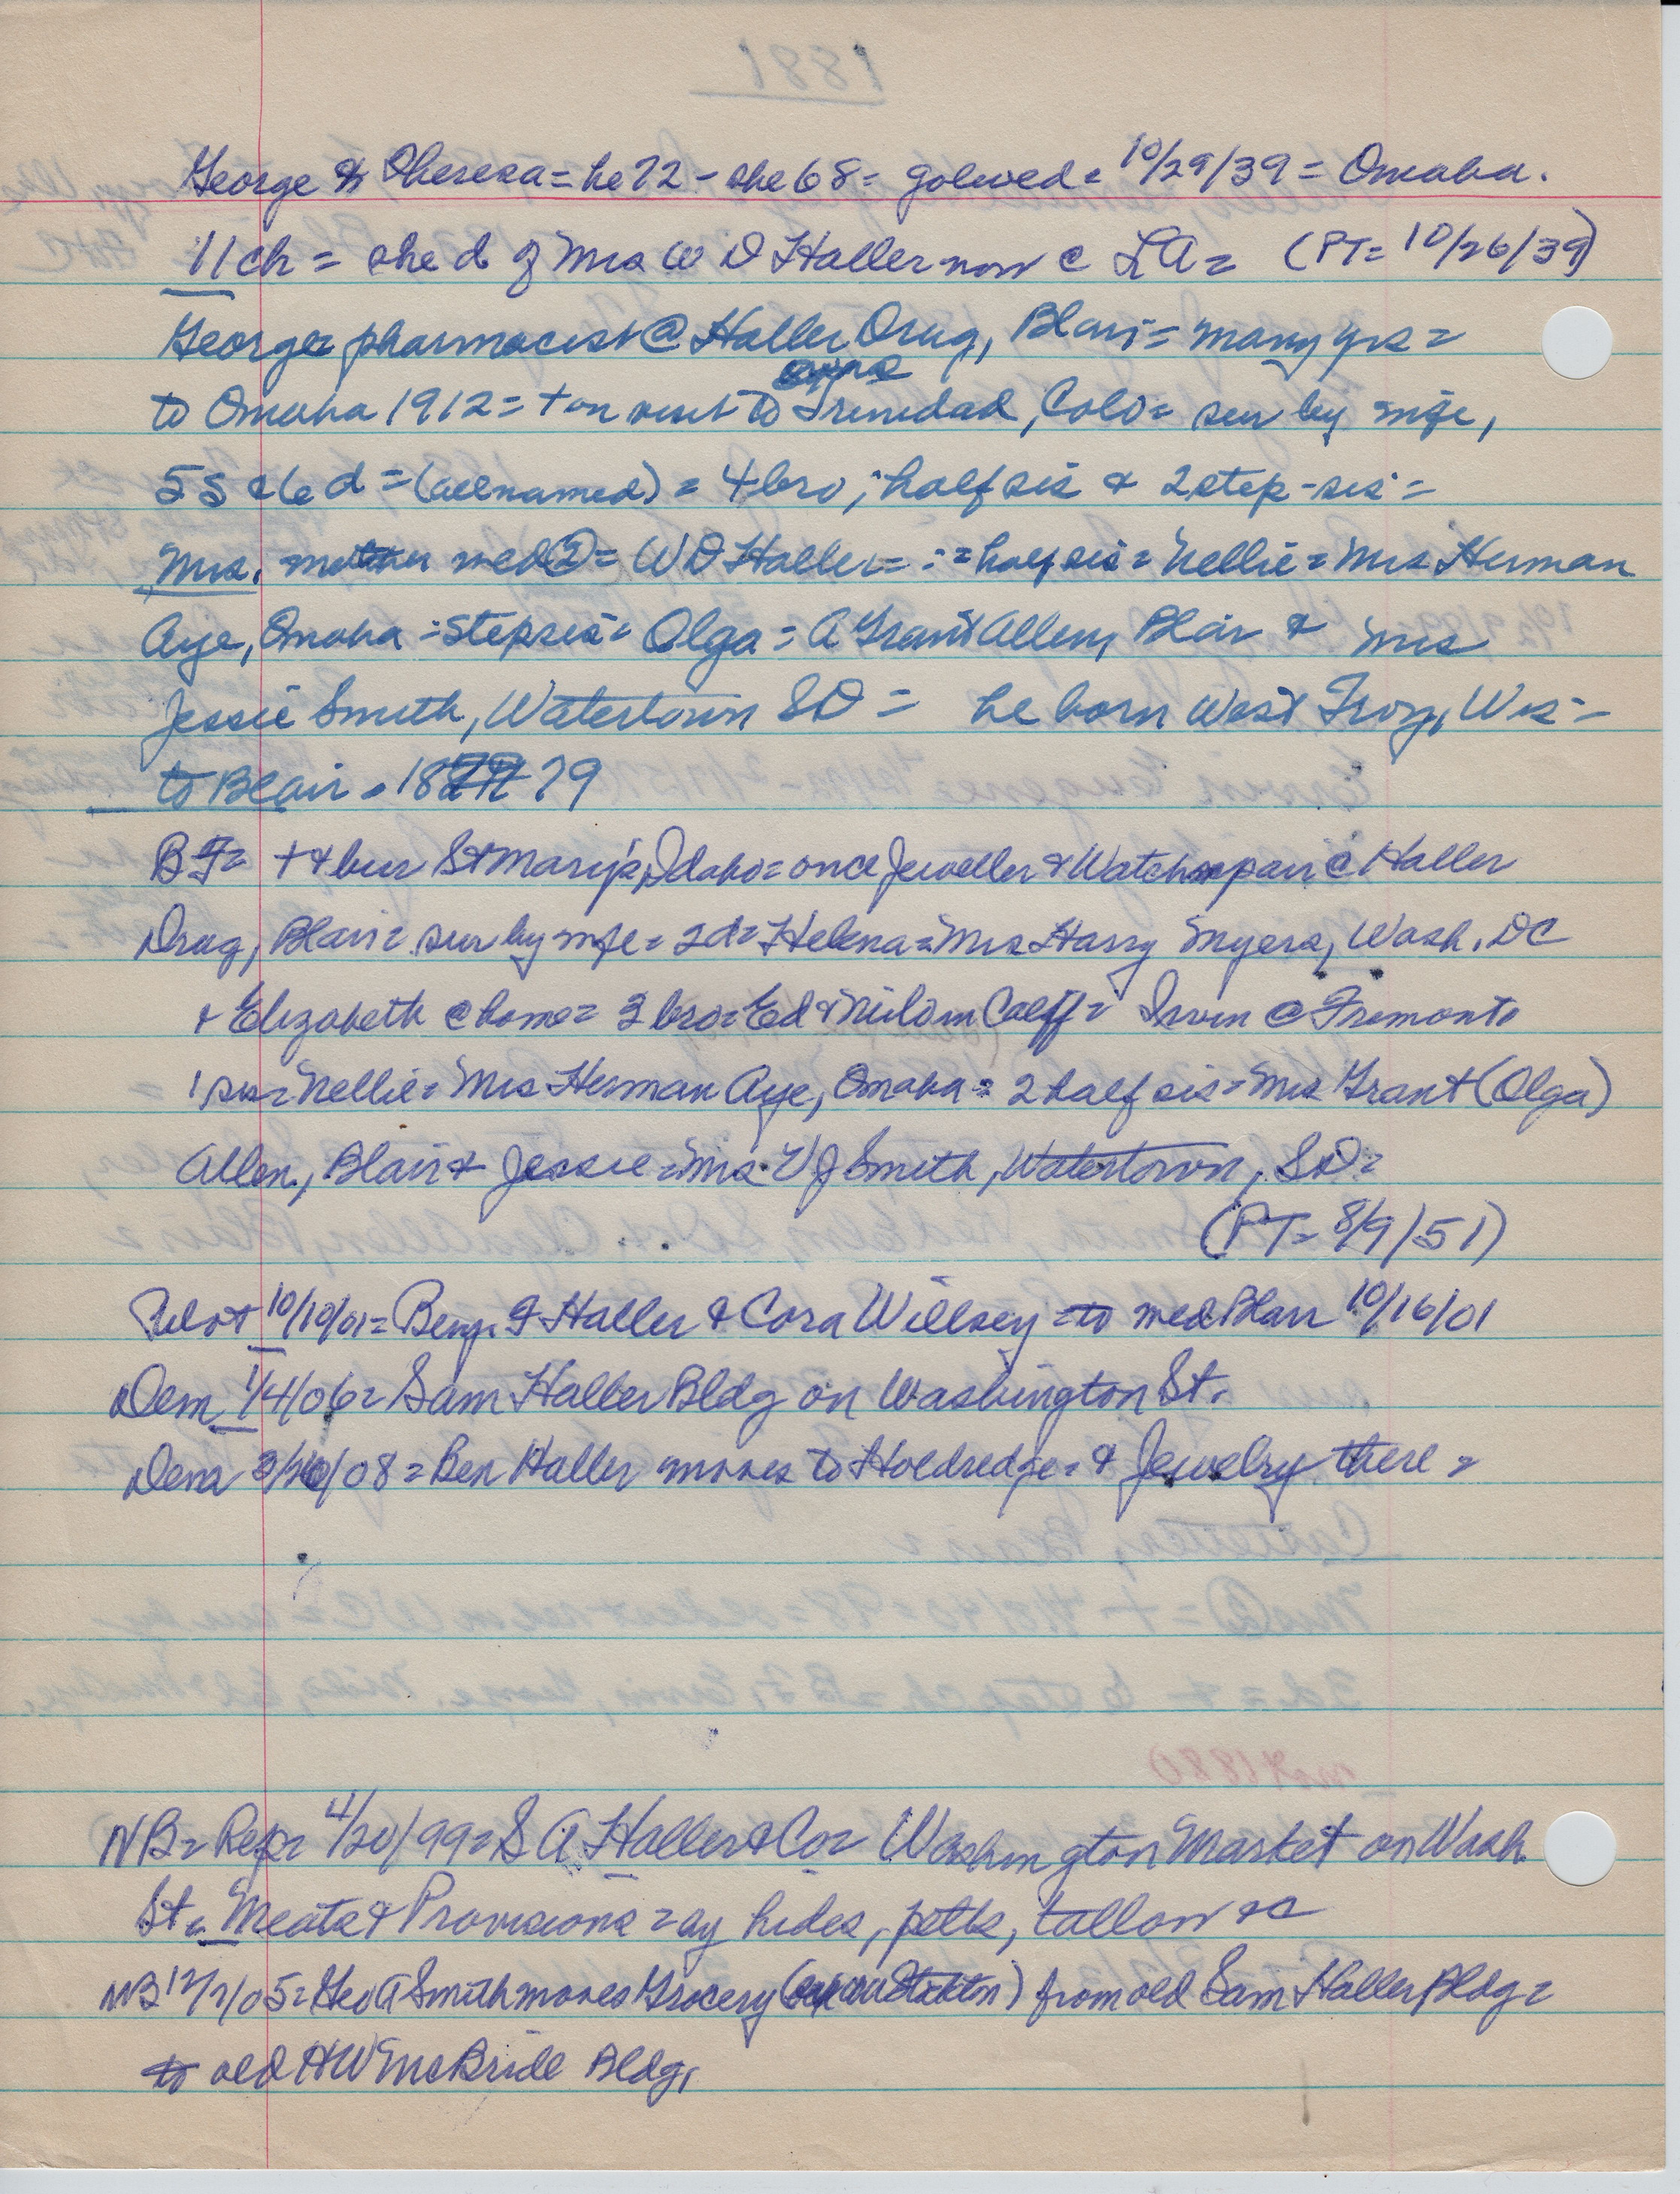 George & Theresa = he 72 - she 68 = golwed = 10/29/39 = Omaha.
11 ch = she d of Mrs W D Haller now @ LA = (PT = 10/26/39)
George = pharmacist @ Haller Drug, Blair = many yrs =
to Omaha 1912 = + on visit to Trinidad, Colo = sur by wife,
5 S & 6 d = (all named) = 4 bro, half sis & 2 step-sis =
Mrs. mother wed ② = W D Haller = = half sis = Nellie = Mrs Herman
Aye, Omaha = step sis = Olga = A Grant Allen, Blair & Mrs
Jessie Smith, Watertown SD = he born West Troy, Wis =
to Blair = 1879
BF = + & bur St Mary's, Idaho = once Jeweller & Watch repair @ Haller
Drug, Blair = sur by wife = 2d = Helena = Mrs Harry Myers, Wash. DC
& Elizabeth @ home = 3 bro = Ed & Milo in Calif = Irvin @ Fremont
1 sis = Nellie = Mrs Herman Aye, Omaha = 2 half sis = Mrs Grant (Olga)
Allen, Blair & Jessie = Mrs W J Smith, Watertown, SD =
(PT = 8/9/51)
Pilot 10/10/01 = Benj. F Haller & Cora Willsey = to wed Blair 10/16/01
Dem 1/4/06 = Sam Haller Bldg on Washington St.
Dem /08 = Ben Haller moves to Holdredge = & Jewelry there =
NB = Rep = 4/20/99 = S A Haller & Co = Washington Market on Wash
St = Meats & Provisions = ay hides, pelts, tallow &c
NB 12/7/05 = Geo A Smith moves Grocery ( ) from old Sam Haller Bldg =
to old HW McBride Bldg,